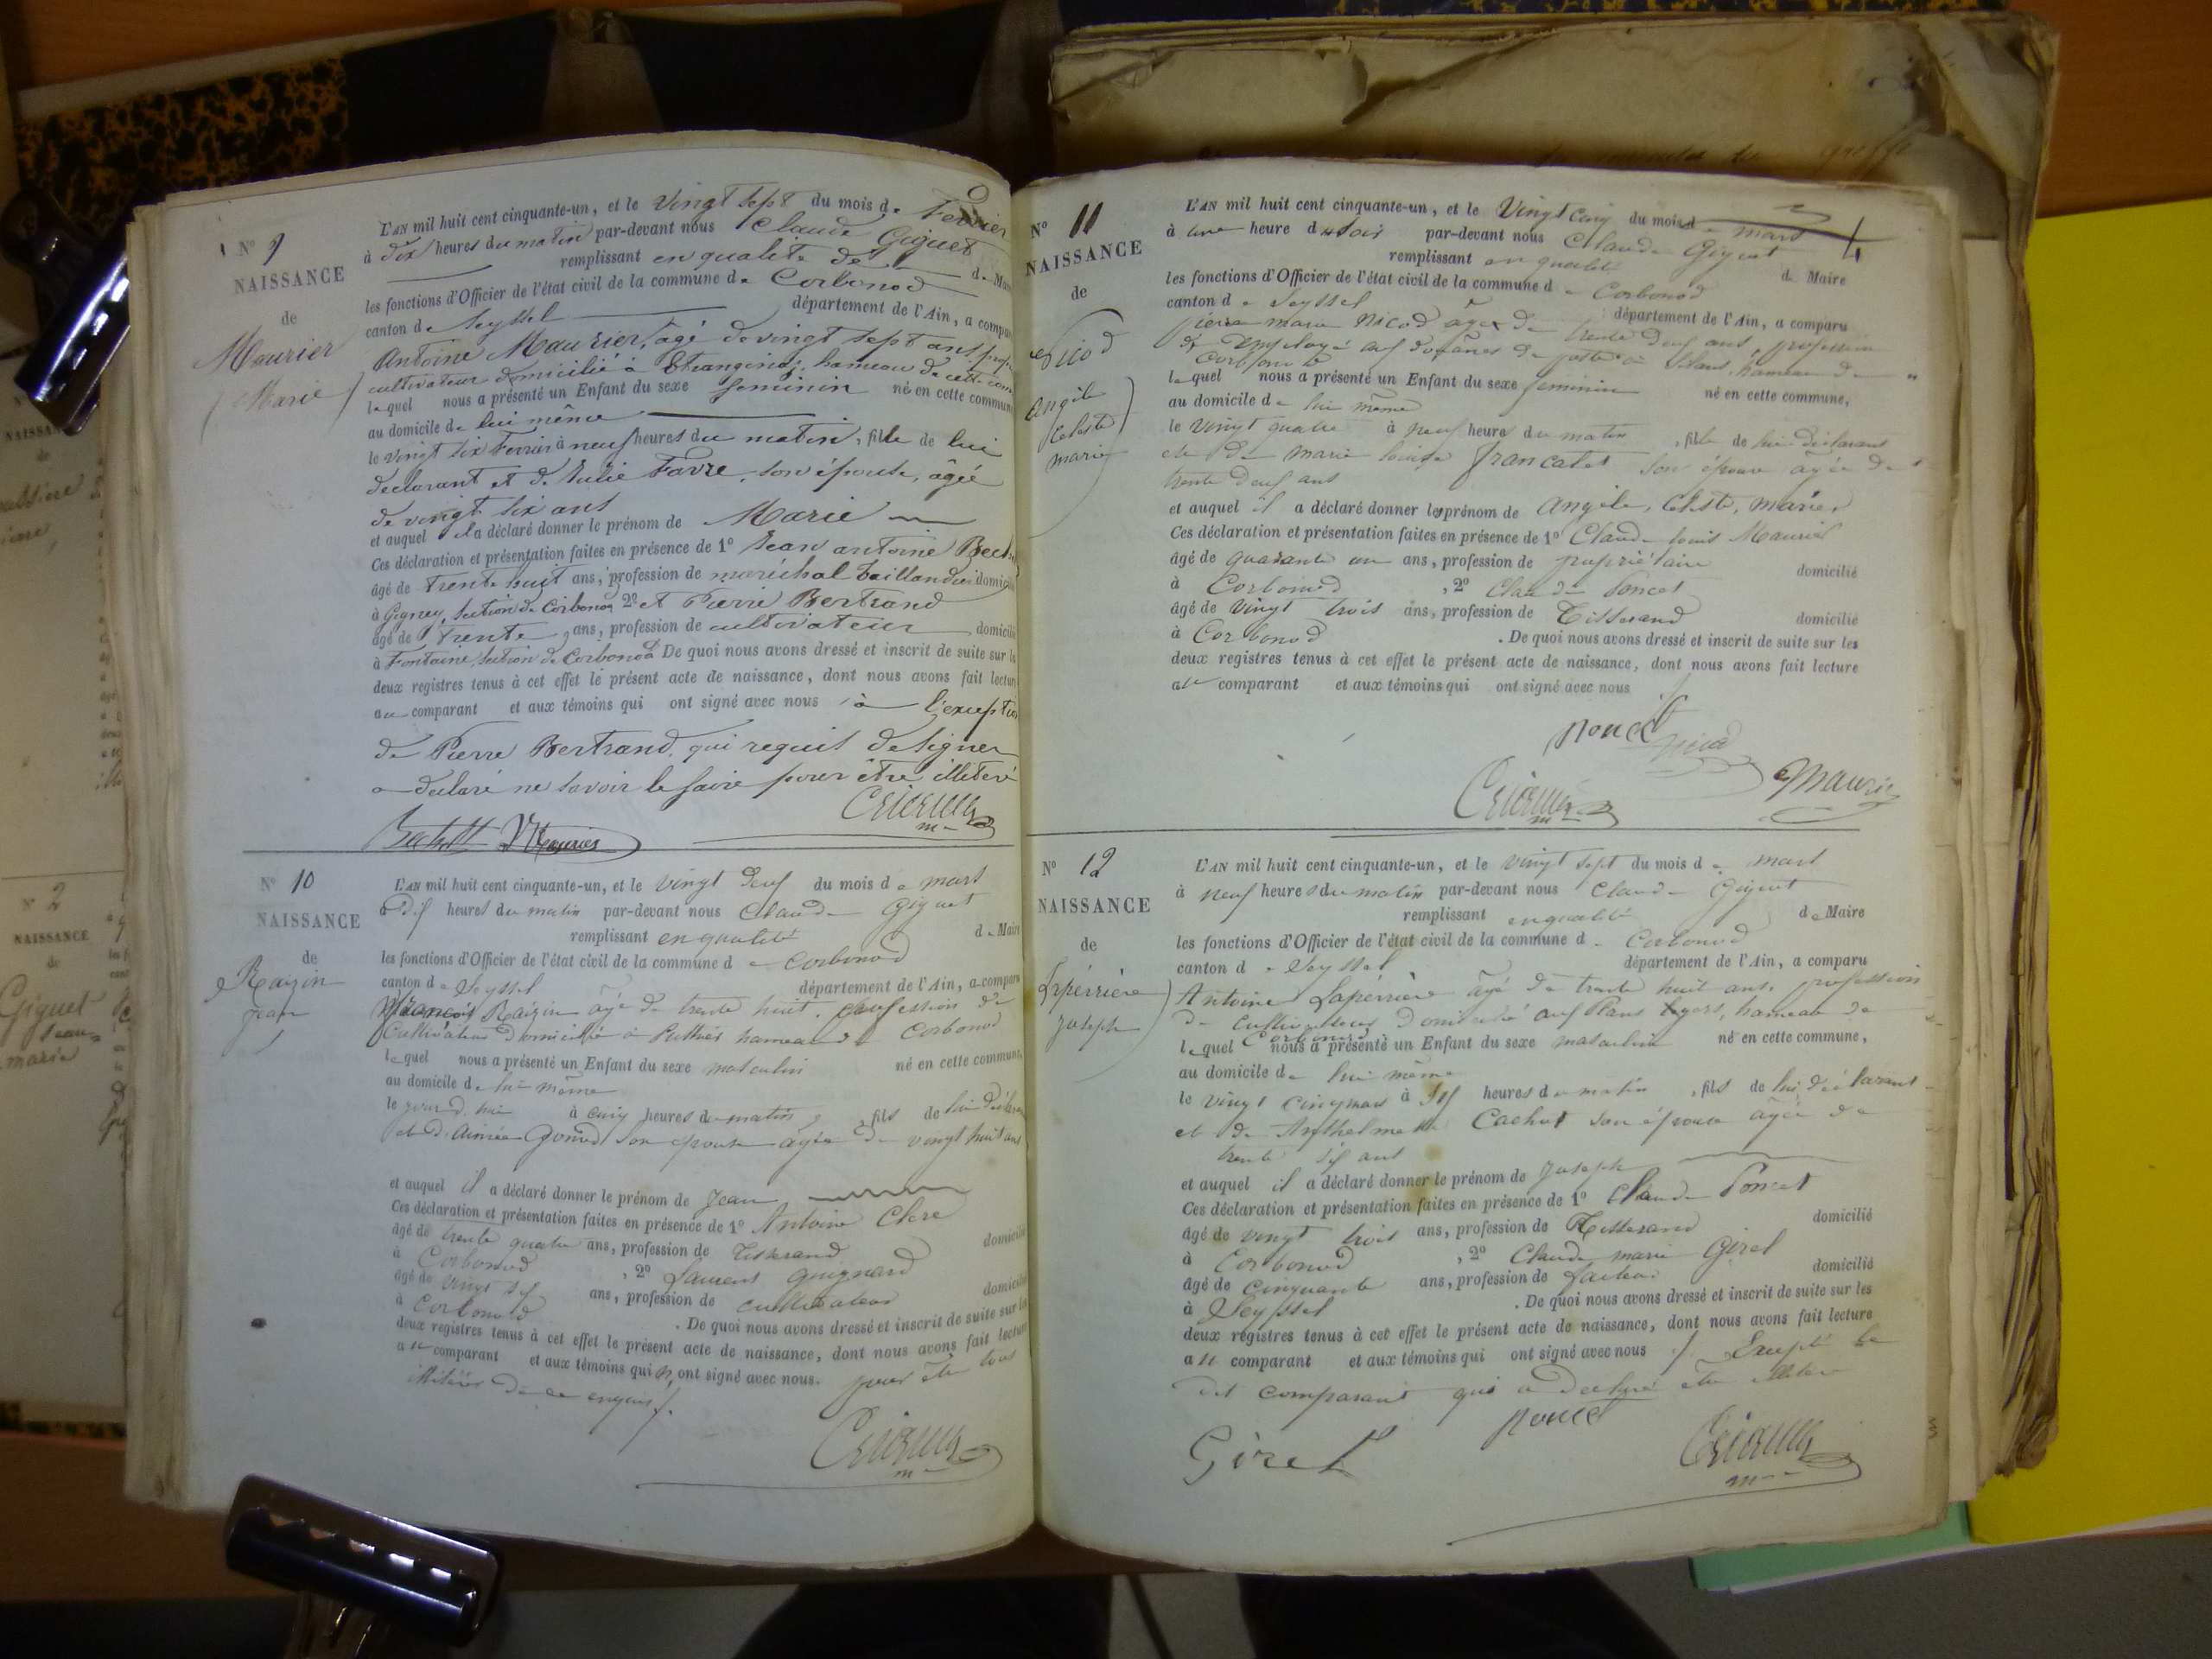 N° 9
NAISSANCE
de
Maurier
Marie
L'AN mil huit cent cinquante-un, et le vingt sept du mois de Fevrier
à dix heures du matin par-devant nous Claude Giguet
remplissant en qualité de de Mai
les fonctions d'Officier de l'état civil de la commune de Corbonod
canton de Seyssel département de l'Ain, a compa
Antoine Maurier, âgé de vingt sept ans, prof
cultivateur domicilié à Etranginaz, hameau de cette com
lequel nous a présenté un Enfant du sexe feminin né en cette commun
au domicile de lui même
le vingt six Fevrier à neuf heures du matin, fille de lui
declarant et de Julie Favre, son épouse, âgée
de vingt six ans
et auquel il a déclaré donner le prénom de Marie
Ces déclaration et présentation faites en présence de 1° Jean antoine
âgé de trente huit ans, profession de maréchal taillandier domici
à Gignez, section de Corbonod 2° et Pierre Bertrand
âgé de trente ans, profession de cultivateur domicili
à Fontaine, section de Corbonod De quoi nous avons dressé et inscrit de suite sur le
deux registres tenus à cet effet le présent acte de naissance, dont nous avons fait lectur
au comparant et aux témoins qui ont signé avec nous à l'exceptio
de Pierre Bertrand, qui requis de signer
a declaré ne savoir le faire pour être illeteré
Maurier
N° 10
NAISSANCE
de
Razin
jean
L'AN mil huit cent cinquante-un, et le vingt deux du mois de mars
à dix heures du matin par-devant nous Claude Giguet
remplissant en qualité de Maire
les fonctions d'Officier de l'état civil de la commune de Corbonod
canton de Seyssel département de l'Ain, a comparu
françois Razin âgé de trente huit, profession de
Cultivateur domicilié à hameau de Corbonod
lequel nous a présenté un Enfant du sexe masculin né en cette commune,
au domicile de lui même
le jourd'hui à cinq heures du matin, fils de lui déclarant
et d'Aimée son épouse agée de vingt huit ans
et auquel il a déclaré donner le prénom de Jean
Ces déclaration et présentation faites en présence de 1° Antoine Clerc
âgé de trente quatre ans, profession de tisserand domicilié
à Corbonod, 2° Laurent Guignard
âgé de vingt six ans, profession de cultivateur domicilié
à Corbonod. De quoi nous avons dressé et inscrit de suite sur les
deux registres tenus à cet effet le présent acte de naissance, dont nous avons fait lecture
au comparant et aux témoins qui n'ont signé avec nous. pour être tous
illitérés de ce enquis.
N° 11
NAISSANCE
de
Nicod
angèle
Céleste
marie
L'AN mil huit cent cinquante-un, et le Vingt cinq du mois de mars
à une heure du soir par-devant nous Claude Giguet
remplissant en qualité de Maire
les fonctions d'Officier de l'état civil de la commune de Corbonod
canton de Seyssel département de l'Ain, a comparu
pierre marie Nicod âgé de trente deux ans, profession
d'Employé aux douanes de poste à hameau de
Corbonod
lequel nous a présenté un Enfant du sexe feminin né en cette commune,
au domicile de lui même
le vingt quatre à neuf heure du matin, fille de lui déclarant
et de marie louise françatet son épouse agée de
trente deux ans
et auquel il a déclaré donner le prénom de angèle, Céleste, marie,
Ces déclaration et présentation faites en présence de 1° Claude louis Maurier
âgé de quarante un ans, profession de propriétaire domicilié
à Corbonod, 2° Claude Poncet
âgé de vingt trois ans, profession de Tisserand domicilié
à Corbonod. De quoi nous avons dressé et inscrit de suite sur les
deux registres tenus à cet effet le présent acte de naissance, dont nous avons fait lecture
au comparant et aux témoins qui ont signé avec nous
Poncet
Nicod
Maurier
N° 12
NAISSANCE
de
Lapérrière
joseph
L'AN mil huit cent cinquante-un, et le vingt sept du mois de mars
à neuf heures du matin par-devant nous Claude Giguet
remplissant en qualité de Maire
les fonctions d'Officier de l'état civil de la commune de Corbonod
canton de Seyssel département de l'Ain, a comparu
Antoine Lapérrière âgé de trente huit ans, profession
de cultivateur domicilié aux Plans hameau de
Corbonod
lequel nous a présenté un Enfant du sexe masculin né en cette commune,
au domicile de lui même
le vingt cinq mars à six heures du matin, fils de lui déclarant
et de Anthelmette Cachat son épouse âgée de
trente six ans
et auquel il a déclaré donner le prénom de joseph
Ces déclaration et présentation faites en présence de 1° Claude Poncet
âgé de vingt trois ans, profession de Tisserand domicilié
à Corbonod, 2° Claude marie Girel
âgé de cinquante ans, profession de facteur domicilié
à Seyssel. De quoi nous avons dressé et inscrit de suite sur les
deux registres tenus à cet effet le présent acte de naissance, dont nous avons fait lecture
au comparant et aux témoins qui ont signé avec nous Excepté le
dit comparant qui a declaré être
Girel
Poncet
N° 2
NAISSANCE
de
Giguet
Jean
marie